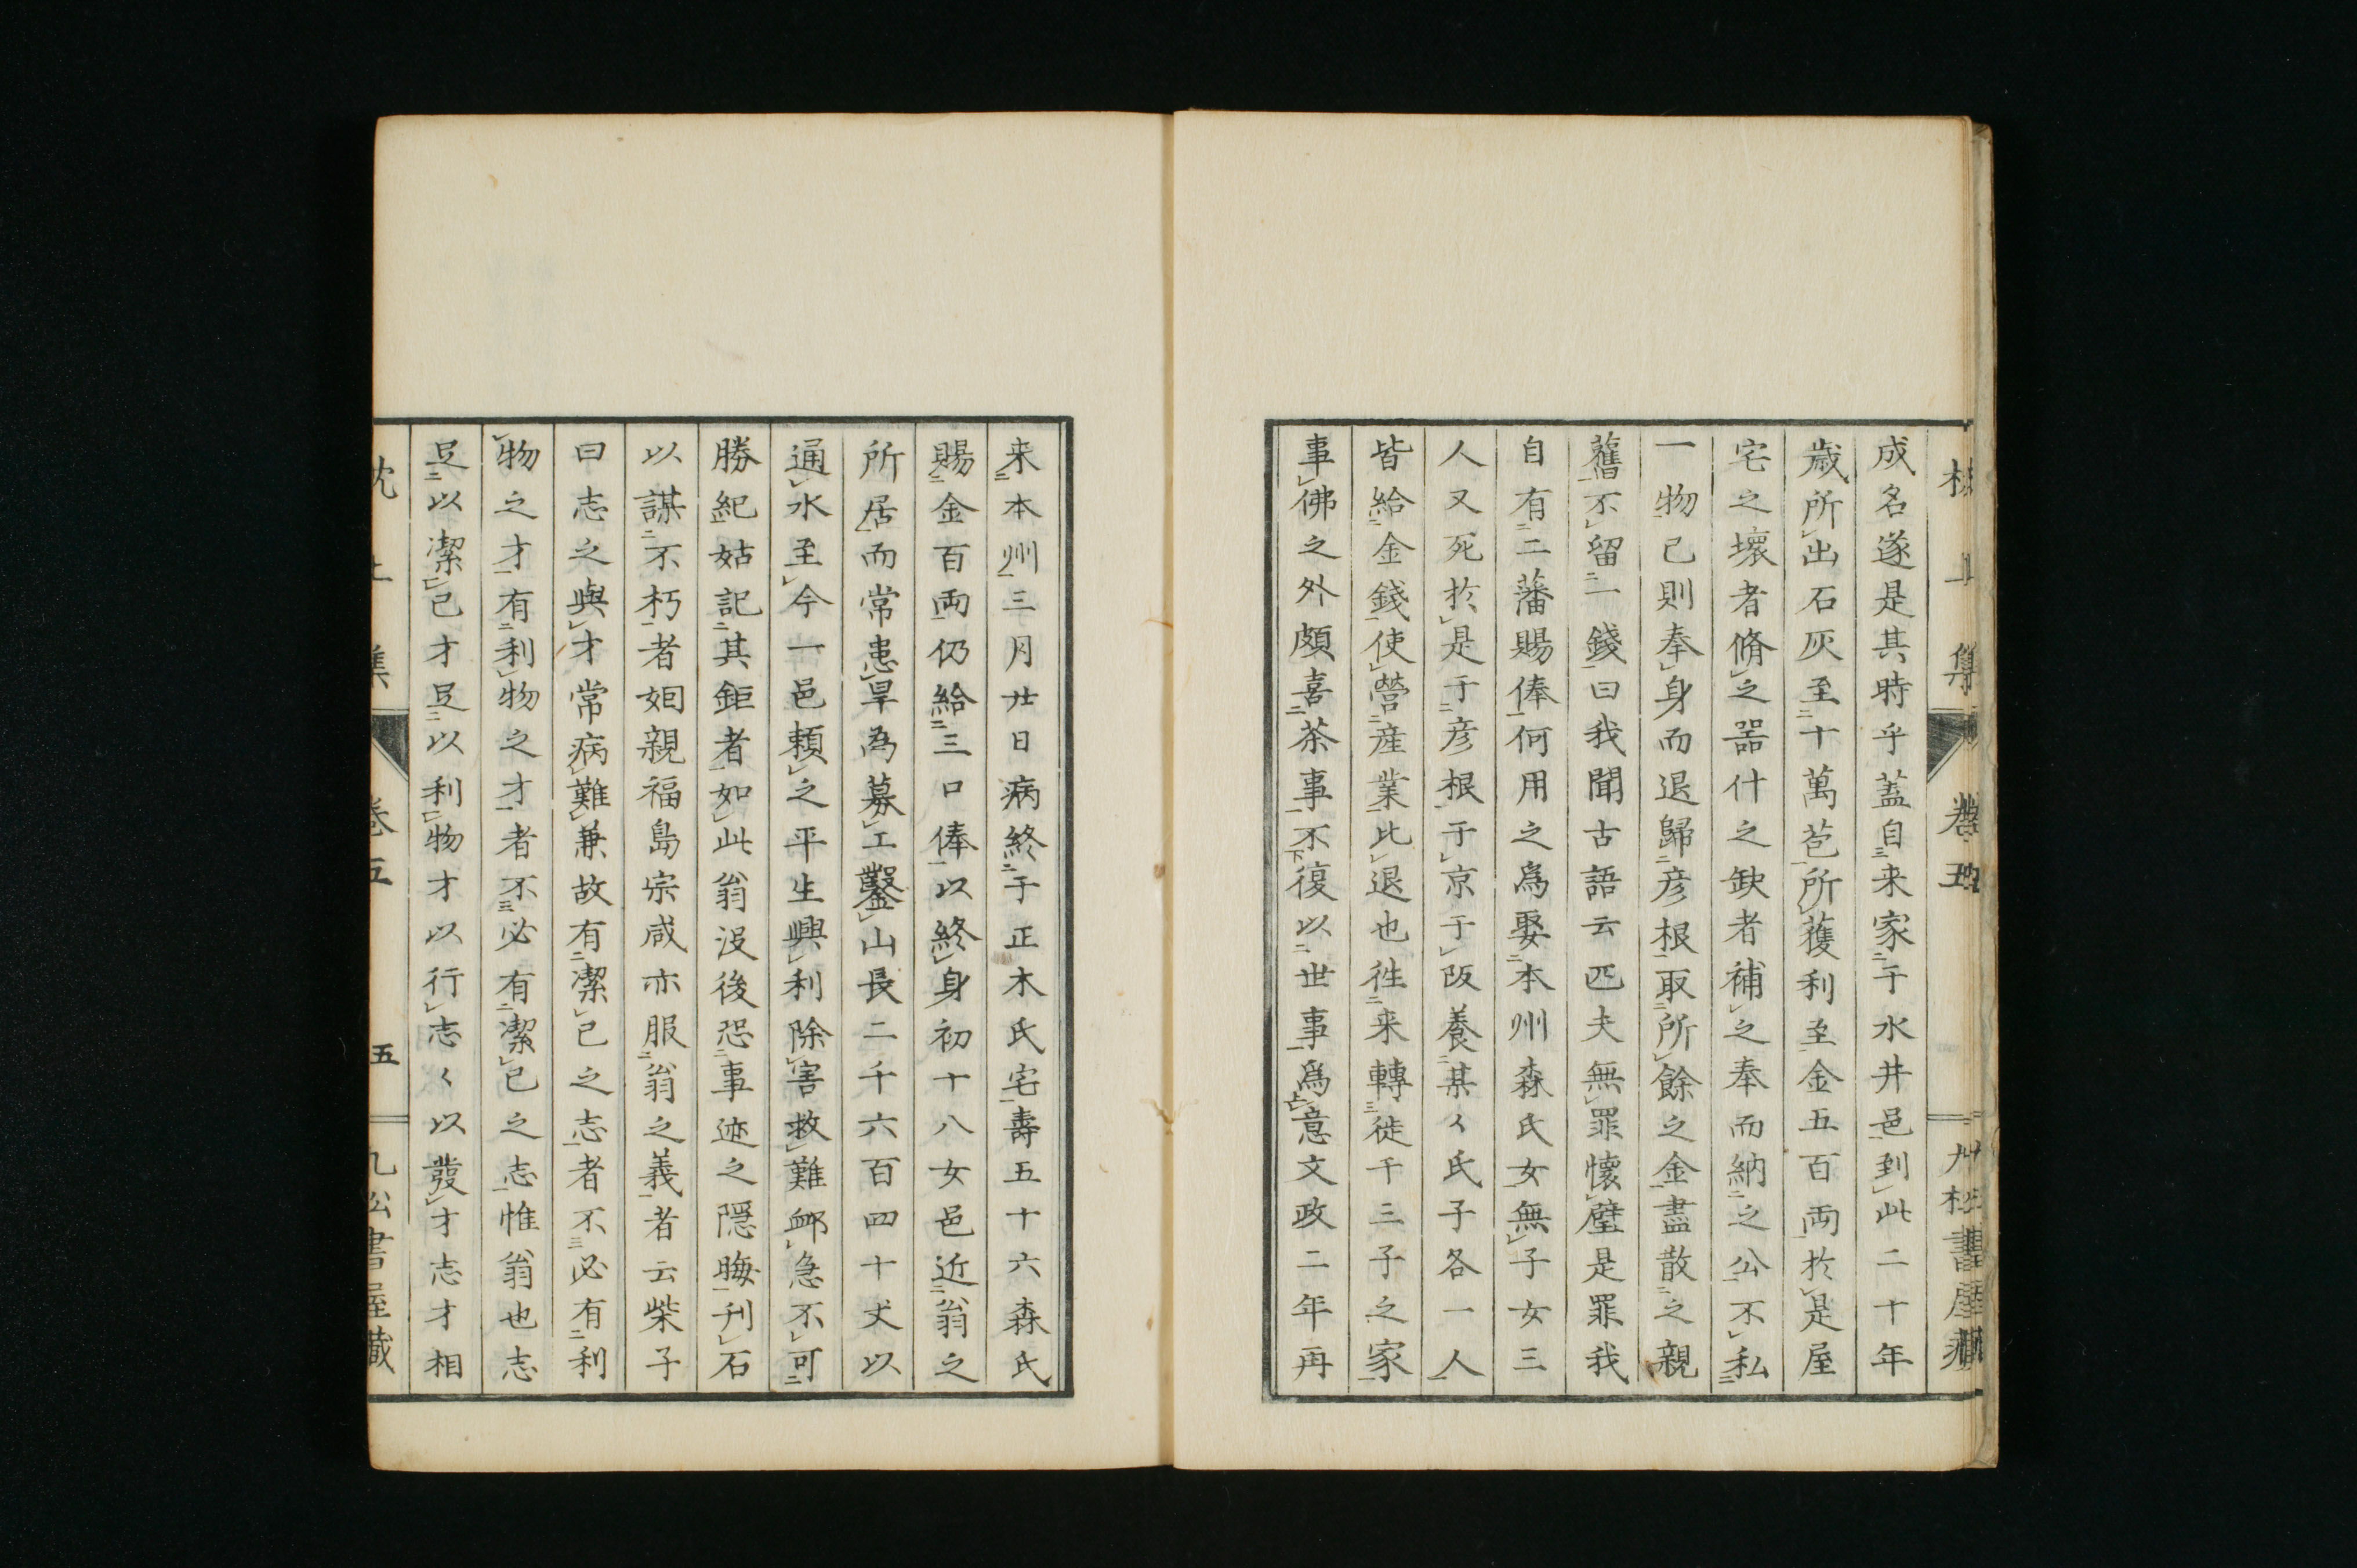 成名遂是其時乎蓋自来家于水井邑到此二十年
歳所出石灰至十萬苞所獲利至金五百両於是屋
宅之壞者脩之噐什之缺者補之奉而納之公不私
一物己則奉身而退歸彦根取所餘之金盡散之親
舊不留一錢曰我聞古語云匹夫無罪懷璧是罪我
自有二藩賜俸何用之爲娶本州森氏女無子女三
人又死於是于彦根于京于阪養某〻氏子各一人
皆給金錢使營産業比退也徃来轉徙千三子之家
事佛之外頗喜茶事不復以世事爲意文政二年再
来本州三月廿日病終于正木氏宅壽五十六森氏
賜金百両仍給三口俸以終身初十八女邑近翁之
所居而常患旱為募工鑿山長二千六百四十丈以
通水至今一邑頼之平生興利除害救難衈急不可
勝紀姑記其鉅者如此翁沒後恐事迹之隱晦刊石
以謀不朽者姻親福島宗咸亦服翁之義者云柴子
曰志之與才常病難兼故有潔己之志者不必有利
物之才有利物之才者不必有潔己之志惟翁也志
足以潔己才足以利物才以行志〻以發才志才相
卷五
五